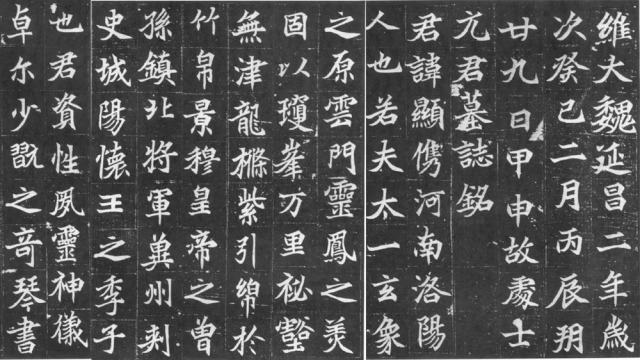 維大魏延昌二年歲
次癸巳二月丙辰朔
廿九日甲申故處士
元君墓誌銘
君諱顯儁河南洛陽
人也若夫太一玄象
之原雲門靈鳳之美
固以瓊峯万里祕壑
無津龍樠紫引綿於
竹帛景穆皇帝之曾
孫鎮北將軍冀州刺
史城陽懷王之季子
也君資性夙靈神儀
卓尔少翫之奇琴書